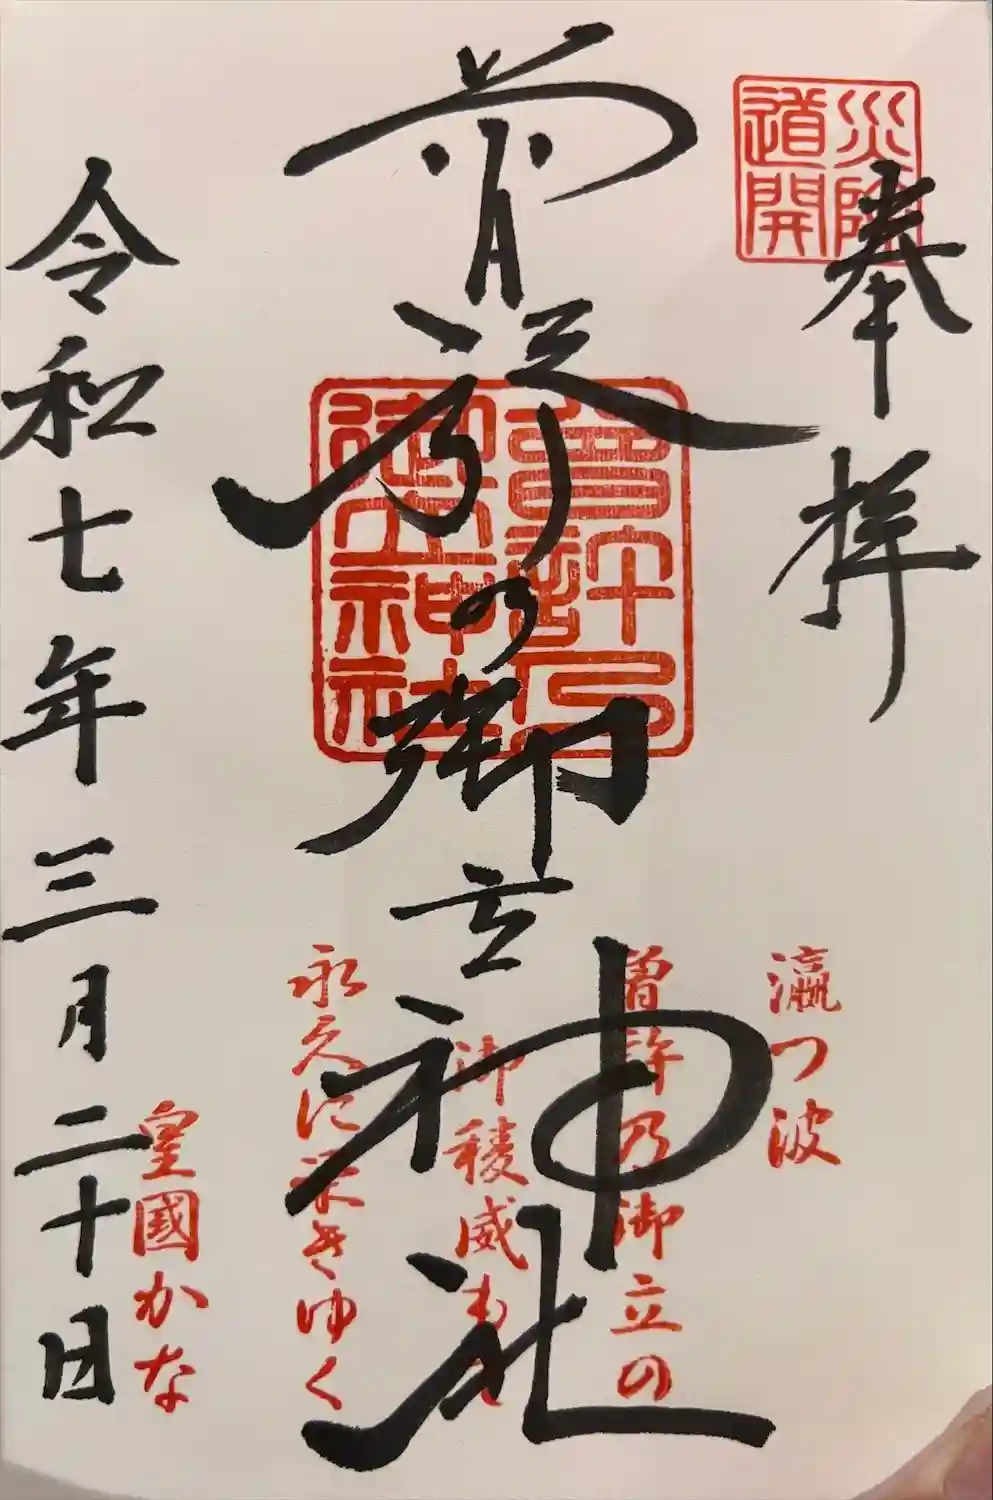 災除
道開
奉拝
曽許乃御立神社
曾許乃
御立神社
瀛つ波
曽許乃御立の
御稜威
永久に栄きゆく
皇國かな
令和七年三月二十日